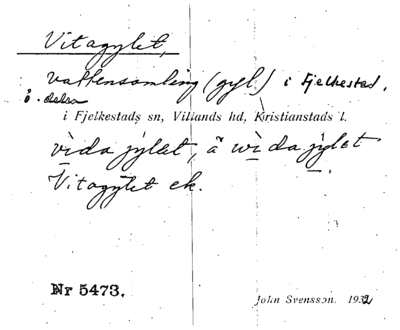 Vitagylet,
vattensamling (gyl.) i Fjelkestad,
ö. delen
i Fjelkestads sn, Villands hd, Kristianstads l.
vida jylet, å wida jylet
Vitagylet ek.
Nr 5473.
John Svensson. 1932